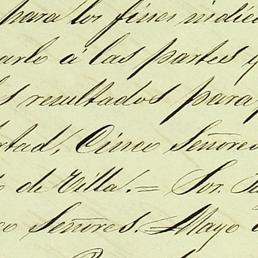 para los fines indic
arlo á las partes y
s resultados para
rtad, Cinco Señores
de Villa. = Sor.
co Señores. Mayo